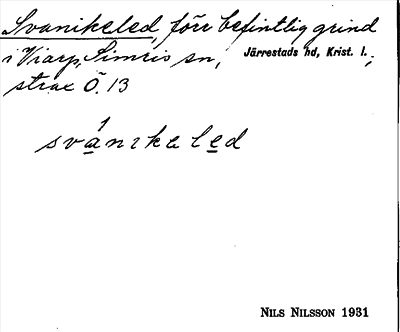 Svanikeled, förr befintlig grind
i Viarp, Simris sn, Järrestads hd, Krist. l.;
strax Ö. 13
svánıkeled
NILS NILSSON 1931